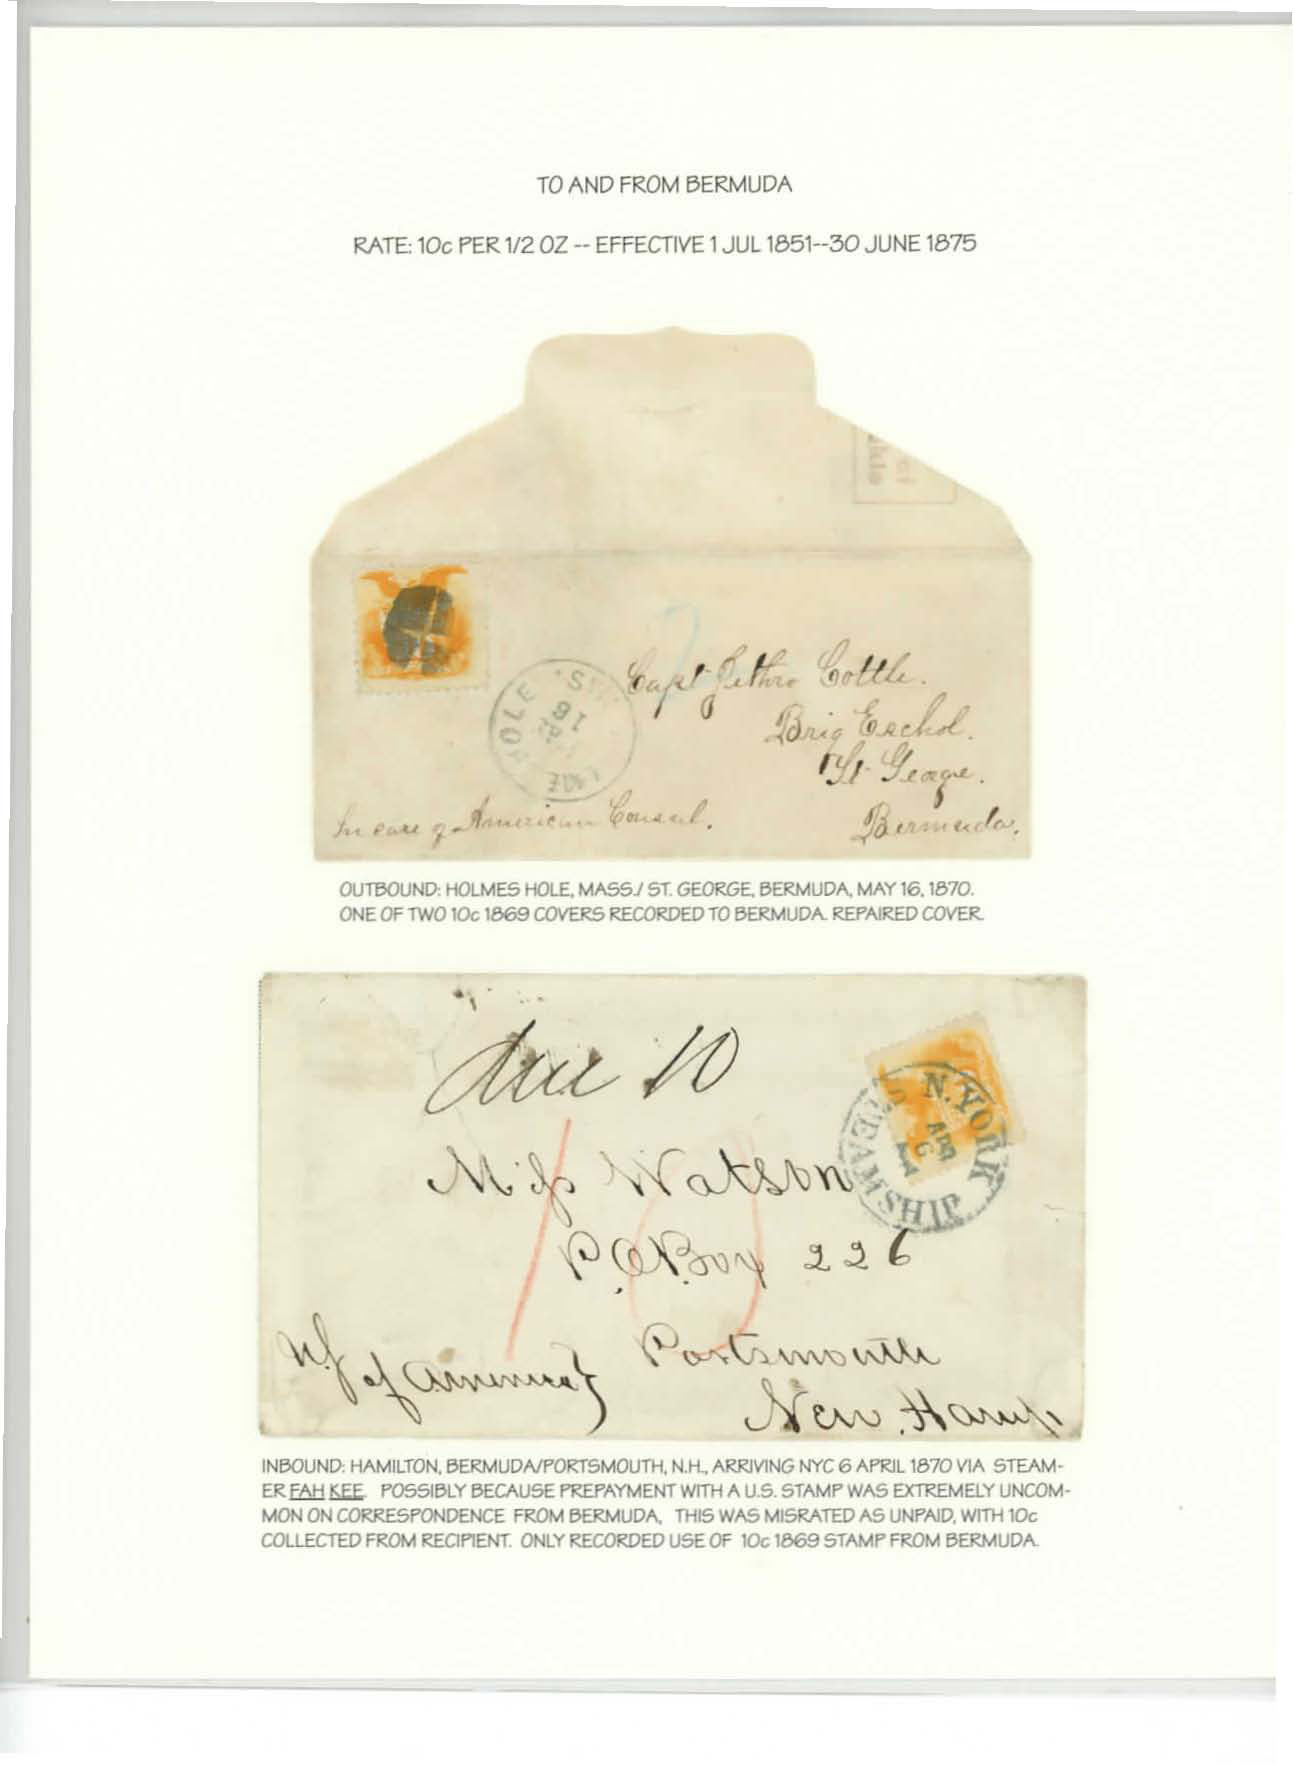 TO AND FROM BERMUDA
RATE: 10c PER 1/2 OZ -- EFFECTIVE 1 JUL 1851--30 JUNE 1875
HOLE
Capt Jethro Cottle.
Brig Eschol.
St George.
In care of American Consul.
Bermuda.
OUTBOUND: HOLMES HOLE, MASS./ ST. GEORGE, BERMUDA, MAY 16, 1870.
ONE OF TWO 10c 1869 COVERS RECORDED TO BERMUDA. REPAIRED COVER.
due 10
N. YORK
APR
6
STEAMSHIP
Miss Watson
10
P.O. Box 226
Portsmouth
of America
New. Hamp.
INBOUND: HAMILTON, BERMUDA/PORTSMOUTH, N.H., ARRIVING NYC 6 APRIL 1870 VIA STEAM-
ER FAH KEE. POSSIBLY BECAUSE PREPAYMENT WITH A U.S. STAMP WAS EXTREMELY UNCOM-
MON ON CORRESPONDENCE FROM BERMUDA, THIS WAS MISRATED AS UNPAID, WITH 10c
COLLECTED FROM RECIPIENT. ONLY RECORDED USE OF 10c 1869 STAMP FROM BERMUDA.